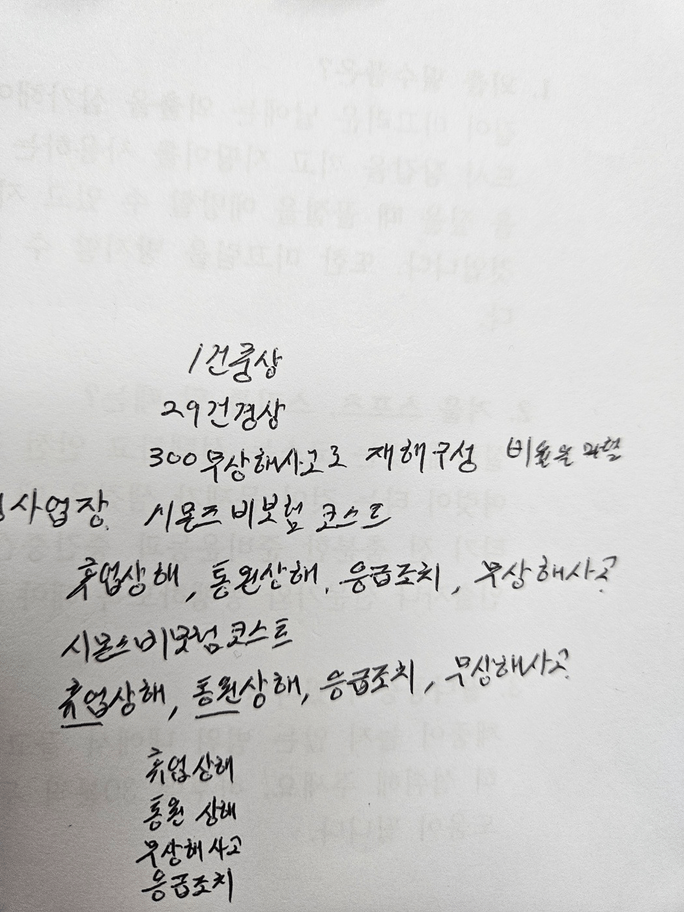 1건중상
29건경상
300무상해사고로 재해구성 비율을
사업장 시몬즈 비보험 코스트
휴업상해, 통원상해, 응급조치, 무상해사고
시몬즈비보험코스트
휴업상해, 통원상해, 응급조치, 무상해사고
휴업상해
통원 상해
무상해사고
응급조치